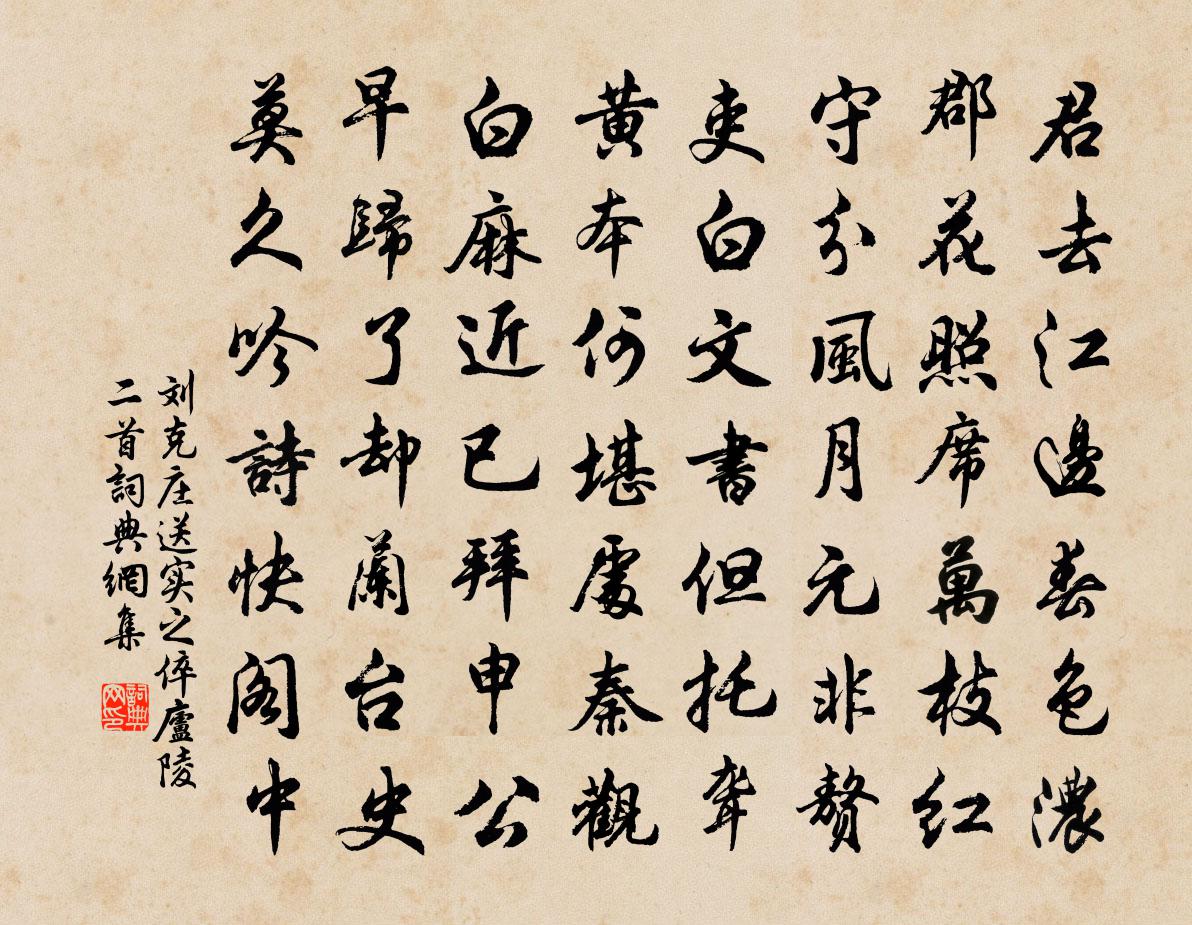 君去江邊春色濃
郡花照席萬枝紅
守分風月元非贅
吏白文書但托聾
黃本何堪處秦觀
白麻近已拜申公
早歸了却蘭台史
莫久吟詩快閣中
刘克庄送实之倅廬陵
二首詞典網集
詞典
网印